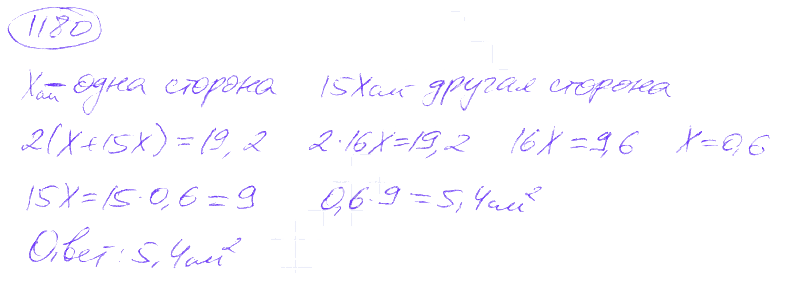 1180
Xсм – одна сторона 15Xсм другая сторона
2(X+15X)=19,2 2·16X=19,2 16X=9,6 X=0,6
15X=15·0,6=9 0,6·9=5,4см²
Ответ: 5,4см²